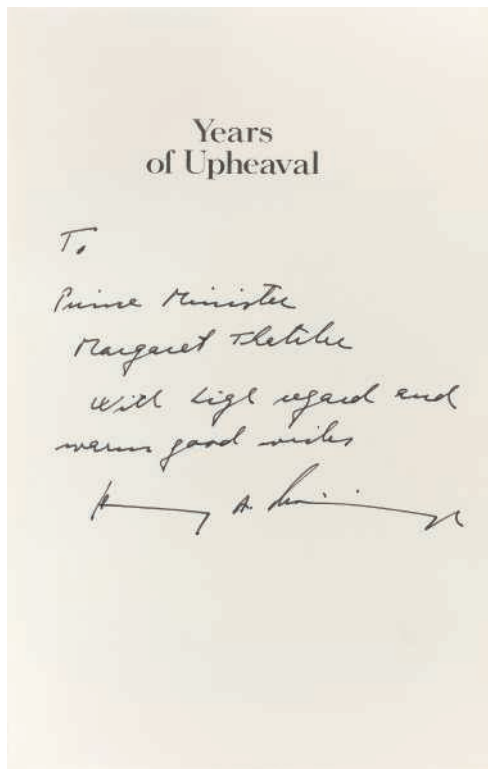 Years
of Upheaval
To
Prime Minister
Margaret Thatcher
with high regard and
warm good wishes
Henry A. Kissinger